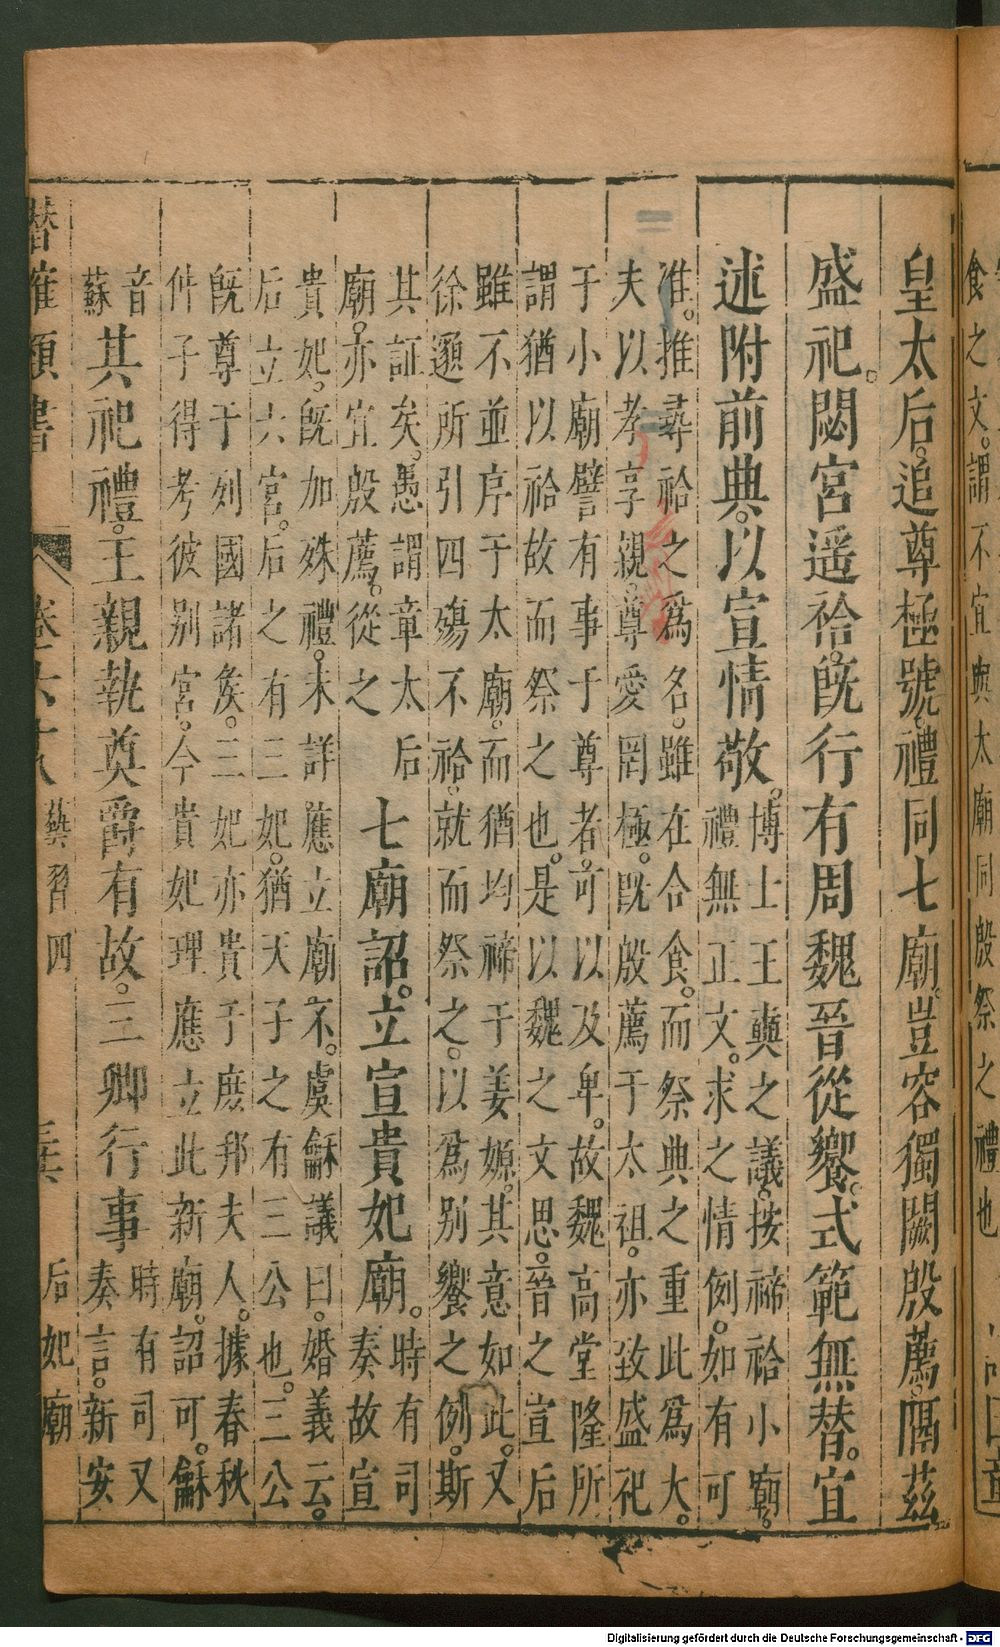 食之文。謂不宜與太廟同殷祭之禮也
皇太后。追尊極號。禮同七廟。豈容獨闕殷薦。隔茲
盛祀。閟宮遥祫。旣行有周。魏晉從饗。式範無替。宜
述附前典。以宣情敬。
博士王燮之議。按禘祫小廟。
禮無正文。求之情例。如有可
准。推尋祫之爲名。雖在合食。而祭典之重此爲大。
夫以孝享親。尊愛罔極。旣殷薦于太祖。亦致盛祀
于小廟譬有事于尊者。可以及卑。故魏高堂隆所
謂猶以祫故而祭之也。是以魏之文思。晉之宣后
雖不並序于太廟。而猶均禘于姜嫄。其意如此。又
徐邈所引四殤不祫。就而祭之。以爲別饗之例。斯
其証矣。愚謂章太后
廟。亦宜殷薦。從之
七廟詔。立宣貴妃廟。
時有司
奏故宣
貴妃。旣加殊禮。未詳應立廟不。虞龢議曰。婚義云。
后立六宮。后之有三妃。猶天子之有三公也。三公
旣尊于列國諸矦。三妃亦貴于庶邦夫人。據春秋
仲子得考彼別宮。今貴妃理應立此新廟。詔可。龢
音
蘇
其祀禮。王親執奠爵有故。三卿行事
時有司又
奏言。新安
潛確類書 卷六十八 藝習四 后妃廟
Digitalisierung gefördert durch die Deutsche Forschungsgemeinschaft - DFG